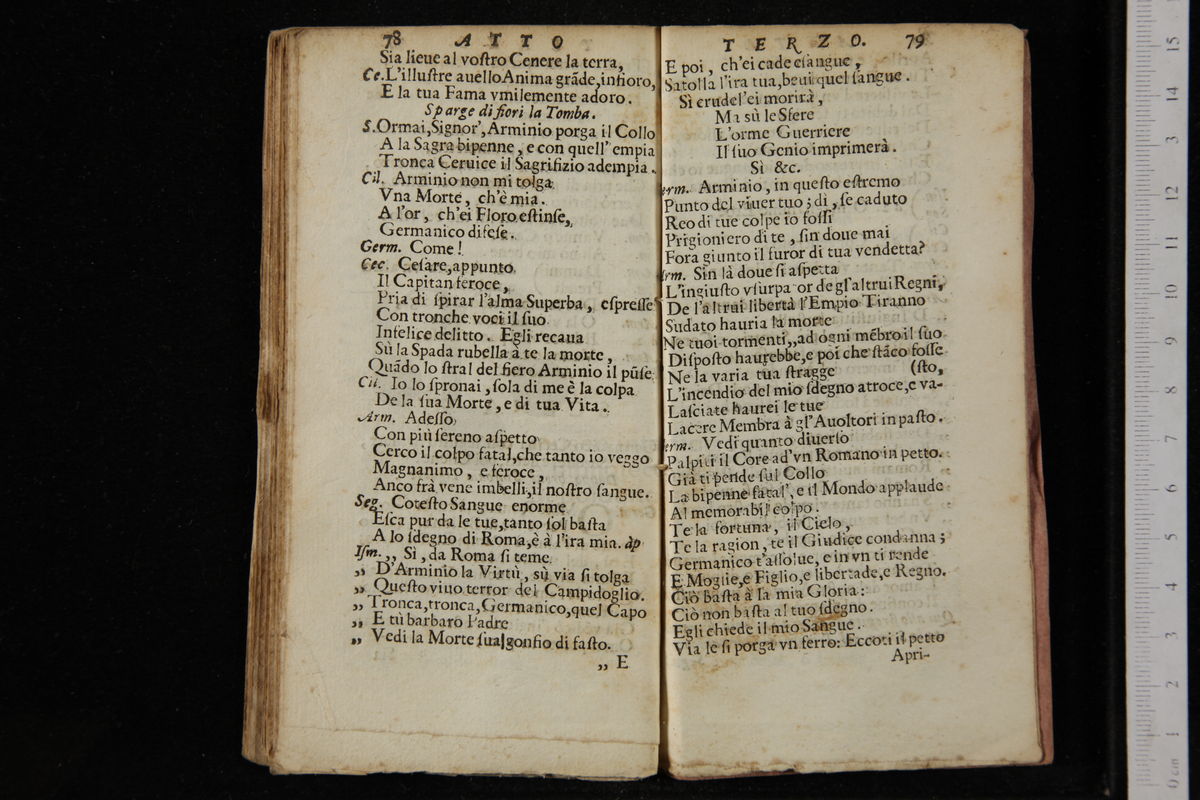 78 ATTO
Sia lieue al voſtro Cenere la terra,
Ce. L'illuſtre auello Anima grãde, infioro,
E la tua Fama vmilemente adoro.
Sparge di fiori la Tomba.
S. Ormai, Signor', Arminio porga il Collo
A la Sagra bipenne, e con quell' empia
Tronca Ceruice il Sagrifizio adempia.
Cil. Arminio non mi tolga
Vna Morte, ch'è mia.
A l'or, ch'ei Floro eſtinſe,
Germanico difeſe.
Germ. Come!
Cec. Ceſare, appunto
Il Capitan feroce,
Pria di ſpirar l'alma Superba, eſpreſſe
Con tronche voci il ſuo
Infelice delitto. Egli recaua
Sù la Spada rubella à te la morte,
Quãdo lo ſtral del fiero Arminio il pũſe.
Cil. Io lo ſpronai, ſola di me è la colpa
De la ſua Morte, e di tua Vita.
Arm. Adeſſo
Con più ſereno aſpetto
Cerco il colpo fatal, che tanto io veggo
Magnanimo, e feroce,
Anco frà vene imbelli, il noſtro ſangue.
Seg. Coteſto Sangue enorme
Eſca pur da le tue, tanto ſol baſta
A lo ſdegno di Roma, è à l'ira mia. àp
Iſm. ,, Sì, da Roma ſi teme
,, D'Arminio la Virtù, sù via ſi tolga
,, Queſto viuo terror del Campidoglio.
,, Tronca, tronca, Germanico, quel Capo
,, E tù barbaro Padre
,, Vedi la Morte ſua, gonfio di faſto.
,, E
TERZO. 79
E poi, ch'ei cade eſangue,
Satolla l'ira tua, beui quel ſangue.
Sì crudel' ei morirà,
Ma sù le Sfere
L'orme Guerriere
Il ſuo Genio imprimerà.
Sì &c.
erm. Arminio, in queſto eſtremo
Punto del viuer tuo; dì, ſe caduto
Reo di tue colpe io foſſi
Prigioniero di te, ſin doue mai
Fora giunto il furor di tua vendetta?
Arm. Sin là doue ſi aſpetta
L'ingiuſto vſurpator de gl'altrui Regni,
De l'altrui libertà l'Empio Tiranno
Sudato hauria la morte
Ne tuoi tormenti,, ad ogni mẽbro il ſuo
Diſpoſto haurebbe, e poi che ſtãco foſſe
Ne la varia tua ſtragge (ſto,
L'incendio del mio ſdegno atroce, e va-
Laſciate haurei le tue
Lacere Membra à gl'Auoltori in paſto.
erm. Vedi quanto diuerſo
Palpiti il Core ad'vn Romano in petto.
Già ti pende ſul Collo
La bipenne fatal', e il Mondo applaude
Al memorabil colpo.
Te la fortuna, il Cielo,
Te la ragion, te il Giudice condanna;
Germanico t'aſſolue, e in vn ti rende
E Moglie, e Figlio, e libertade, e Regno.
Ciò baſta à la mia Gloria:
Ciò non baſta al tuo ſdegno.
Egli chiede il mio Sangue.
Via le ſi porga vn ferro: Eccoti il petto
Apri-